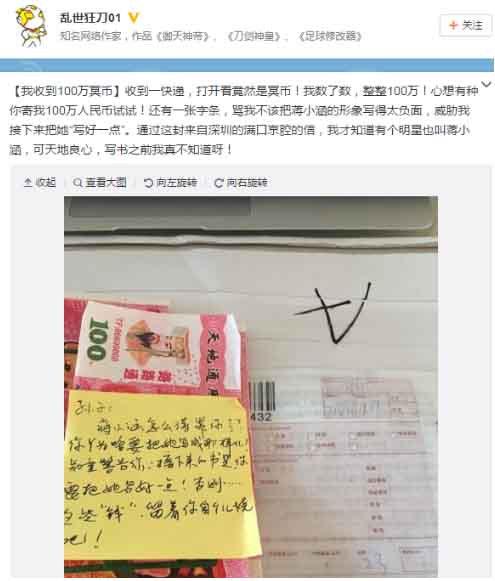 乱世狂刀01
知名网络作家，作品《御天神帝》、《刀剑神皇》、《足球修改器》
+ 关注
【我收到100万冥币】收到一快递，打开看竟然是冥币！我数了数，整整100万！心想有种
你寄我100万人民币试试！还有一张字条，骂我不该把蒋小涵的形象写得太负面，威胁我
接下来把她“写好一点”。通过这封来自深圳的满口京腔的信，我才知道有个明星也叫蒋小
涵，可天地良心，写书之前我真不知道呀！
收起 查看大图 向左旋转 向右旋转
100
天地通用
432
孙子：
蒋小涵怎么得罪你了？
你丫为啥要把她写成那样儿！
警告你：接下来的书里你
要把她写好一点！否则……
这些“钱”，留着你自个儿烧
吧！